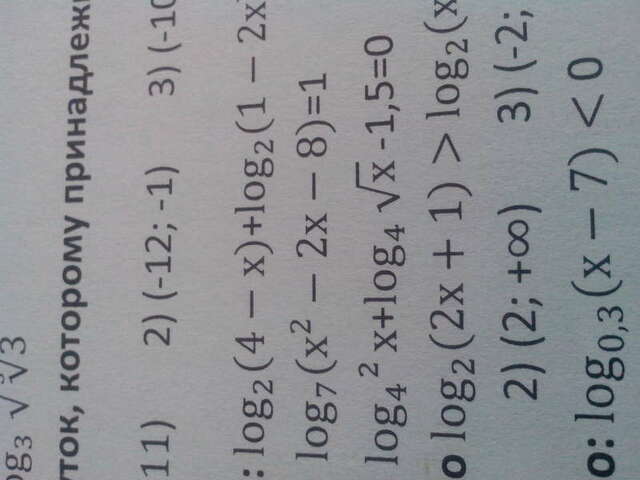 og₃ ∛3
уток, которому принадлеж
11) 2) (-12; -1) 3) (-10
: log₂(4 − x)+log₂(1 − 2x)
log₇(x² − 2x − 8)=1
log₄² x+log₄ √x -1,5=0
о log₂(2x + 1) > log₂(x
2) (2; +∞) 3) (-2;
о: log₀,₃(x − 7) < 0